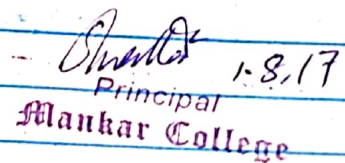 1.8.17
Principal
Mankar College